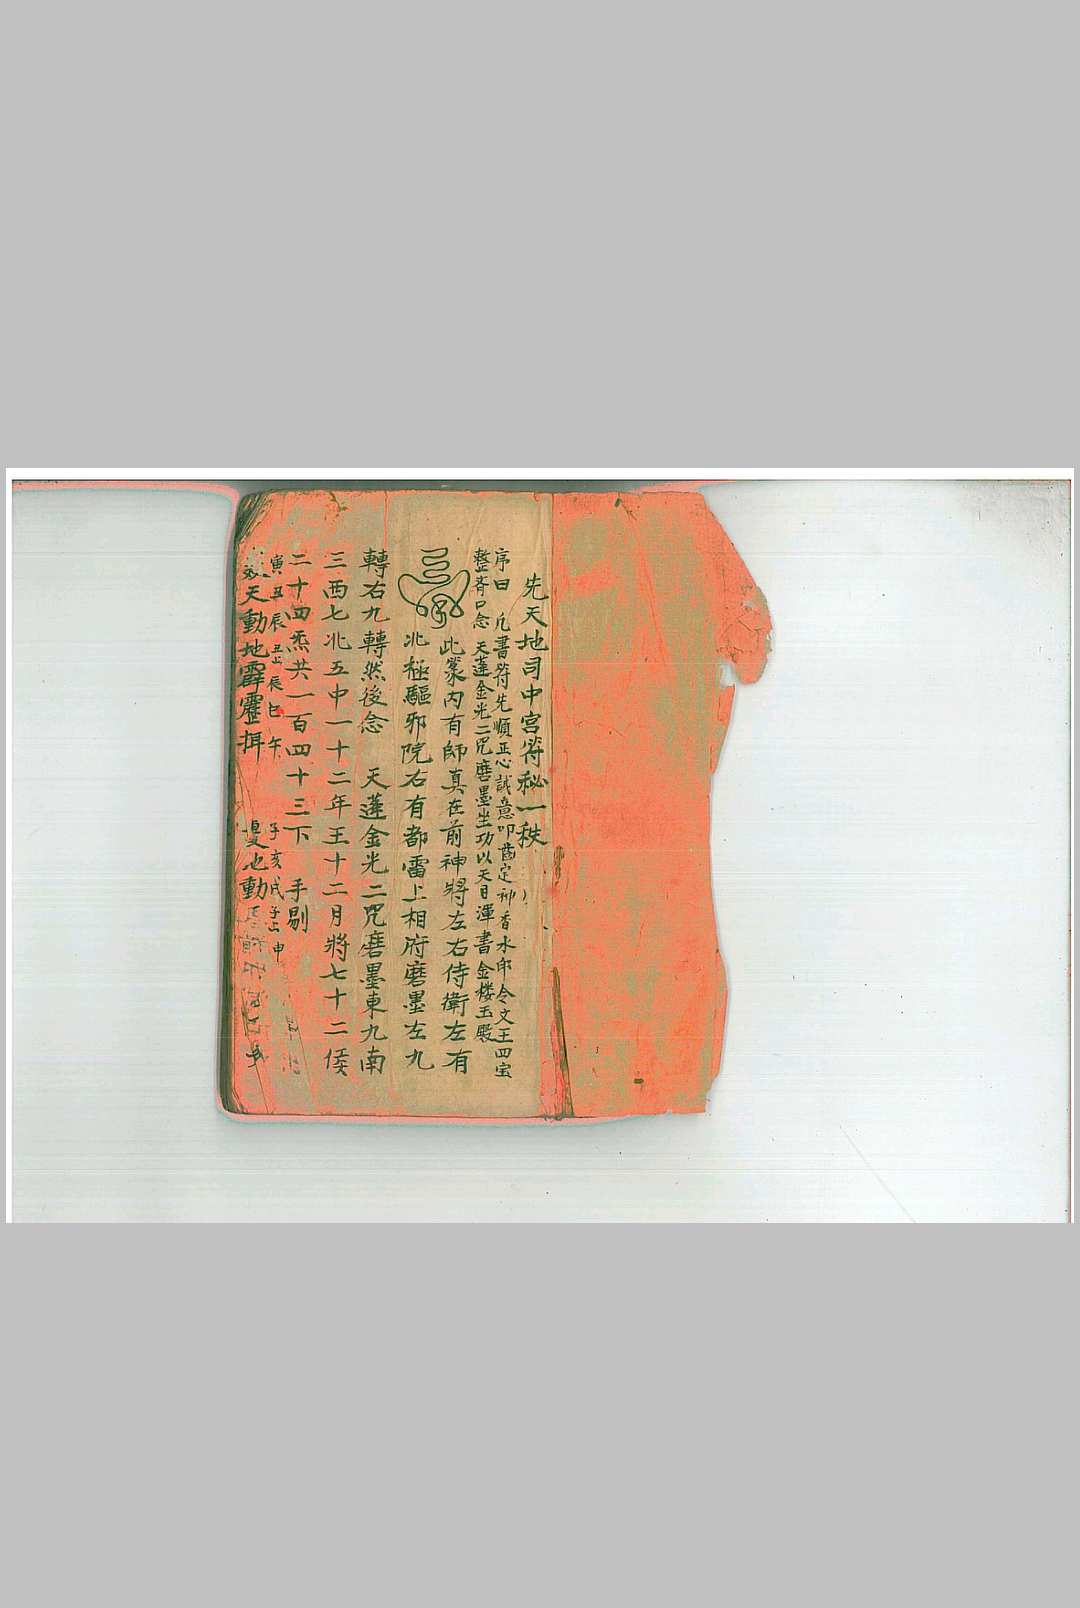 先天地司中宫符秘一秩
序曰 凡書符先順正心誠意叩齒定神香水印令文王四宝
整齐口念 天蓮金光二咒磨墨坐功以天目渾書金楼玉殿
此篆内有師真在前神將左右侍衛左有
北極驅邪院右有都雷上相府磨墨左九
轉右九轉然後念 天蓮金光二咒磨墨東九南
三西七北五中一十二年王十二月將七十二候
二十四炁共一百四十三下 手剔
寅丑辰丑辰巳午 子亥戌子申
天動地霹靂揖 地動